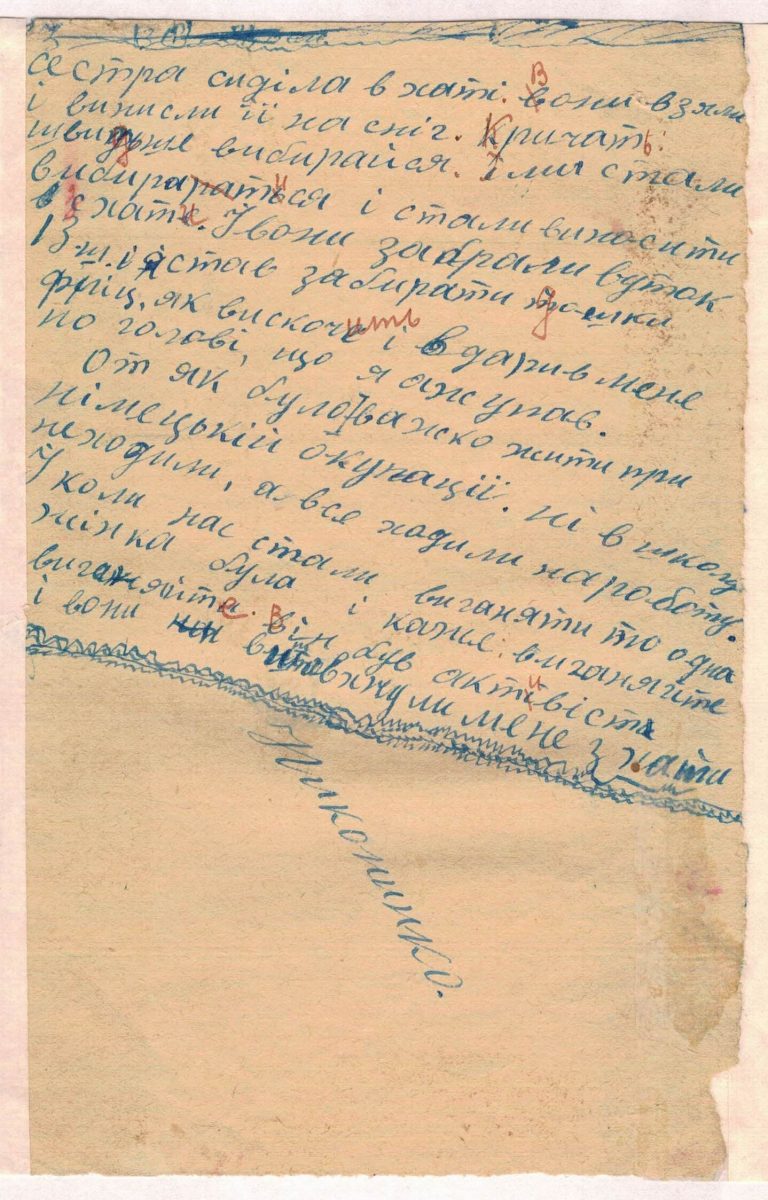 сестра сиділа в хаті. Вони взяли
і винисли її на сніг. Кричать:
швидше вибирайся. І ми стали
вибираться і стали виносити
с хати. І вони забрали вуток
13 ш. і я став забирати дошки
фріц, як вискочить і вдарив мене
по голові, що я аж упав.
От як було важко жити при
німецькій окупації. ні в школу
неходили, а все ходили нароботу.
І коли нас стали виганяти то одна
жінка була і каже: виганяйте
виганяйте. Він був активіст
і вони виштовхнули мене з хати
Никонинко.